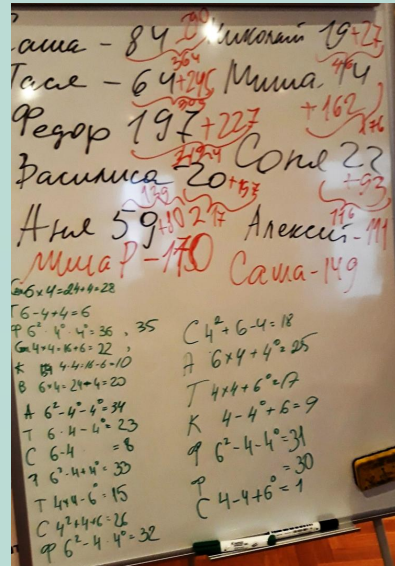 Саша - 84 Николай 19+27
364 46
Тася - 64+245 Миша 14
309 +162
Федор 197+227 176
Василиса 20+197 Соня 23
139 217 +93
Аня 59+80 116
Алексей - 111
Миша Р - 170 Саша - 149
6×4=24+4=28
Т 6-4+4=6
Ф 6²·4⁰·4⁰=36, 35
4×4=16+6=22,
К 4·4=16-6=10
В 6×4=24-4=20
А 6²-4⁰-4⁰=34
Т 6·4-4⁰=23
С 6-4 =8
6²-4+4⁰=33
Т 4×4-6⁰=15
С 4²+4+6=26
Ф 6²-4·4⁰=32
С 4²+6-4=18
А 6×4+4⁰=25
Т 4×4+6⁰=17
К 4-4⁰+6=9
Ф 6²-4-4⁰=31
Ф =30
С 4-4+6⁰=1